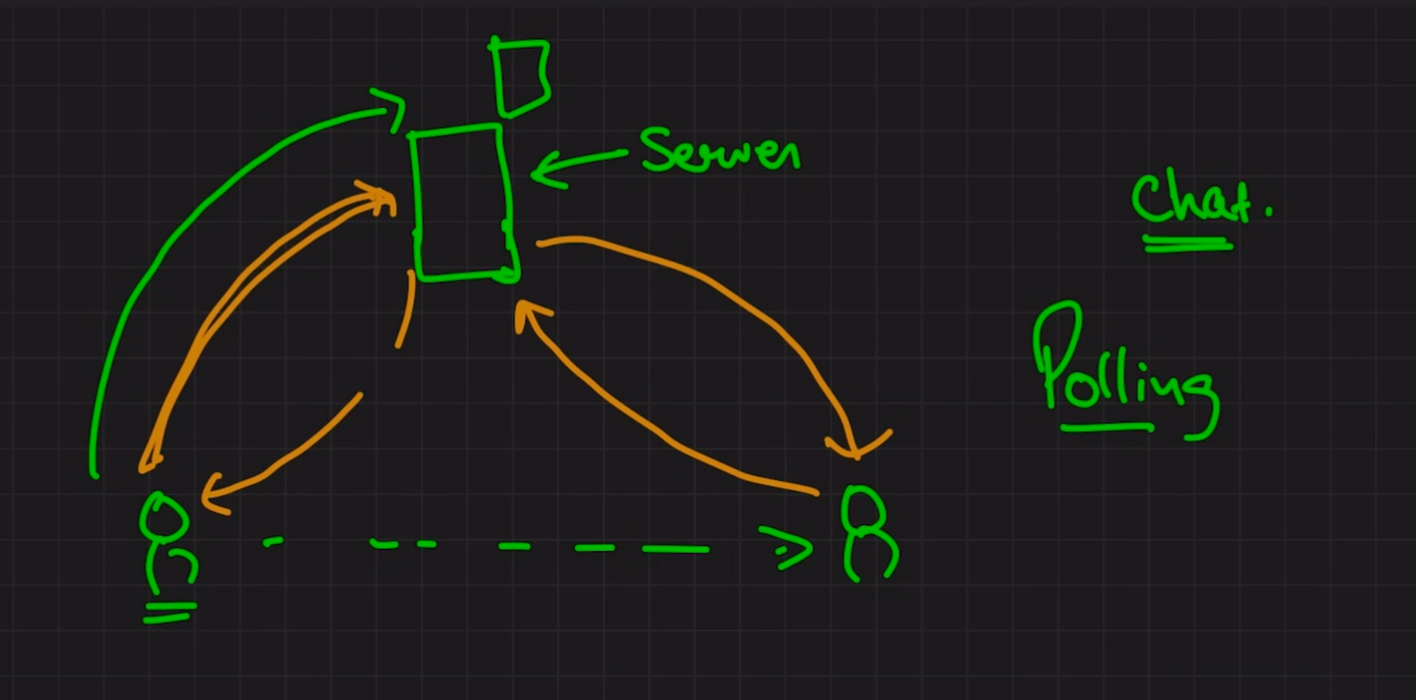 Server
Chat.
Polling